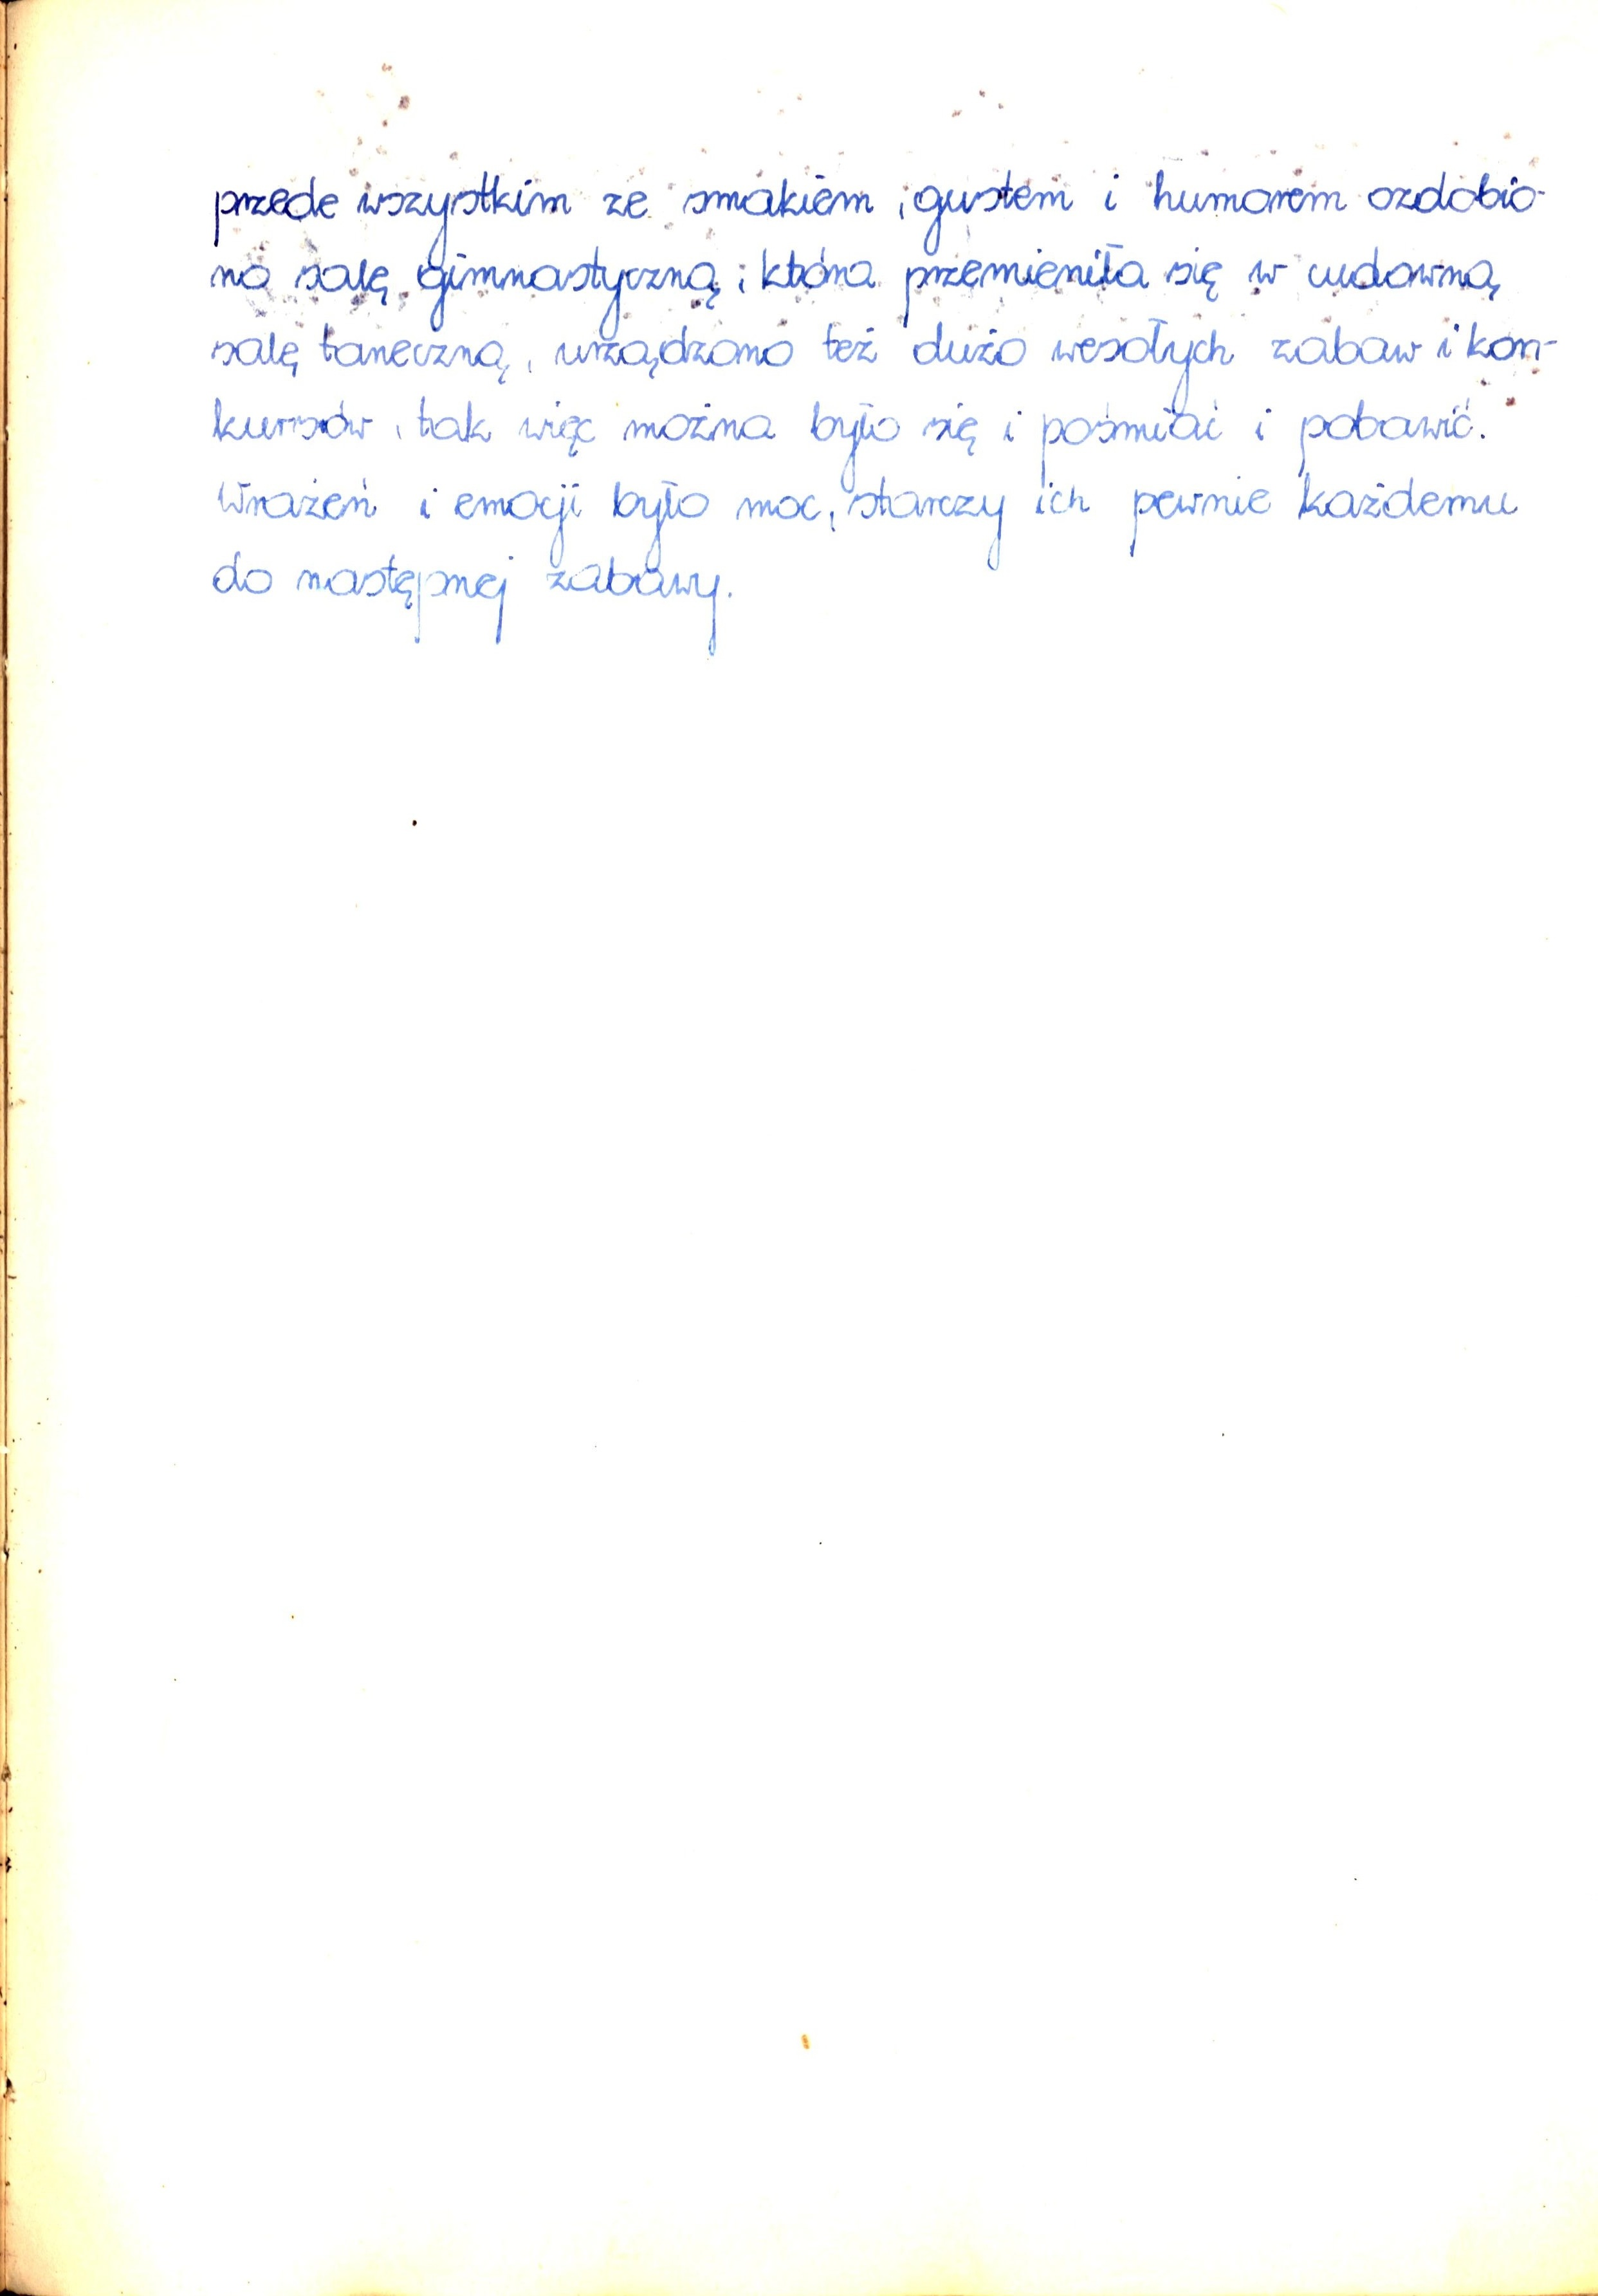 przede wszystkim ze smakiem, gustem i humorem ozdobio-
no salę gimnastyczną, która przemieniła się w cudowną
salę taneczną, urządzono też dużo wesołych zabaw i kon-
kursów, tak więc można było się i pośmiać i pobawić.
Wrażeń i emocji było moc, starczy ich pewnie każdemu
do następnej zabawy.